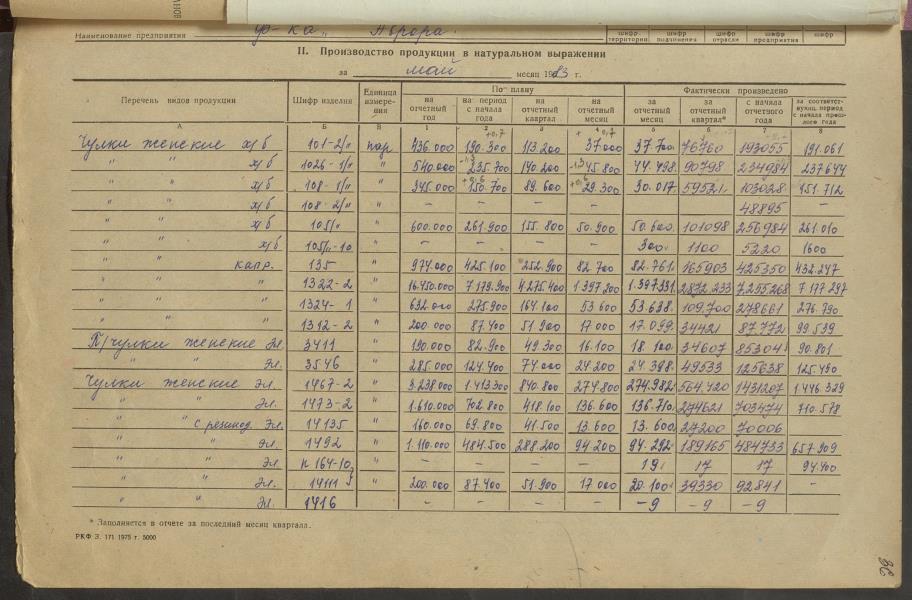 Наименование предприятия ф-ка „Аврора"
шифр территории шифр подчинения шифр отрасли шифр предприятия шифр
II. Производство продукции в натуральном выражении
за май месяц 1983 г.
Перечень видов продукции Шифр изделия Единица измерения По плану Фактически произведено
на отчетный год на период с начала года на отчетный квартал на отчетный месяц за отчетный месяц за отчетный квартал* с начала отчетного года за соответствующ. период с начала прошлого года
А Б В 1 2 3 4 5 6 7 8
Чулки женские х/б 101-2/11 пар 436.000 190.300 113.200 37000 37.700 76760 193055 191.061
" " х/б 1026-1/11 " 540.000 235.700 140.200 45.800 44.498 90798 234984 237644
" " х/б 108-1/11 " 345.000 150.700 89.600 29.300 30.017 59521 103028 151.712
" " х/б 108-2/11 " – – – – 48895 –
" " х/б 105/11 " 600.000 261.900 155.800 50.900 50.600 101098 256984 261.010
х/б 105/11-10 " – – – – 300 1100 5220 1600
" " капр. 135 " 974.000 425.100 252.900 82.700 82.761 165903 425350 432.247
" " " 1322-2 " 16.450.000 7.179.900 4.275.400 1.397.200 1.397.331 2872233 7255268 7177297
" " " 1324-1 " 632.000 275.900 164.100 53.600 53.698 109.700 278661 276.790
" " " 1312-2 " 200.000 87.400 51.900 17.000 17.099 34421 87772 99.539
П/чулки женские эл. 3411 " 190.000 82.900 49.300 16.100 18.100 34607 85304 90.801
" " эл. 3546 " 285.000 124.400 74.000 24.200 24.398 49533 125638 125.450
Чулки женские эл. 1467-2 " 3.238.000 1.413.300 840.800 274.800 274.982 564.420 1431207 1.446.329
" " эл. 1473-2 " 1.610.000 702.800 418.100 136.600 136.710 274621 703474 710.578
" " с резинод. эл. 14135 " 160.000 69.800 41.500 13.600 13.600 27200 70006
" " эл. 1492 " 1.110.000 484.500 288.200 94.200 94.292 189165 484733 657.909
" " эл. к 164-10 " – – – – 19 17 17 94.400
" " эл. 14111 " 200.000 87.400 51.900 17000 20.100 39330 92841 –
" " эл. 1416 " – – – – -9 -9 -9
* Заполняется в отчете за последний месяц квартала.
РКФ З. 171 1975 г. 5000